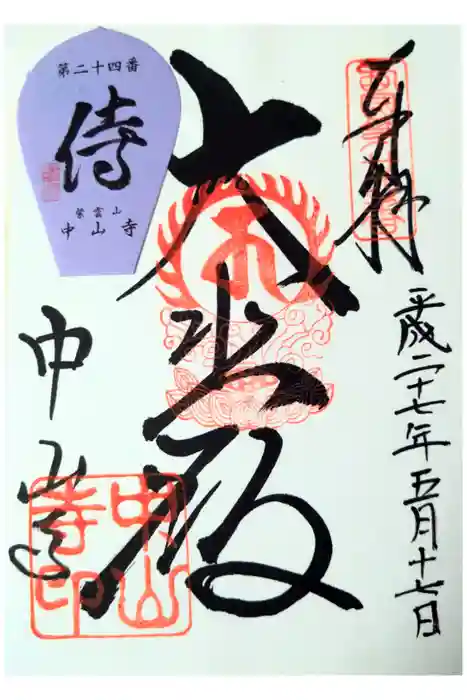 奉拝
平成二十七年五月十七日
大悲殿
中山寺
中山
寺印
第二十四番
侍
紫雲山
中山寺